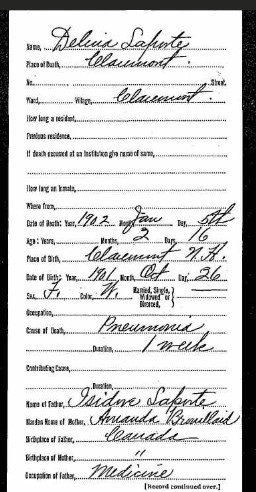 Name, Delicia Laporte
Place of Death, Claremont.
No. Street.
Ward, Village, Claremont.
How long a resident,
Previous residence,
If death occurred at an Institution give name of same,
How long an inmate,
Where from,
Date of Death: Year, 1902 Month, Jan Day, 5th
Age: Years, Months, 2 Days, 16
Place of Birth, Claremont N.H.
Date of Birth: Year, 1901, Month, Oct Day, 26
Sex, F. Color, W. Married, Single, Widowed or Divorced,
Occupation,
Cause of Death, Pneumonia
Duration, 1 week
Contributing Cause,
Duration,
Name of Father, Isidore Laporte
Maiden Name of Mother, Amanda
Birthplace of Father, Canada
Birthplace of Mother, "
Occupation of Father, Medicine
[Record continued over.]